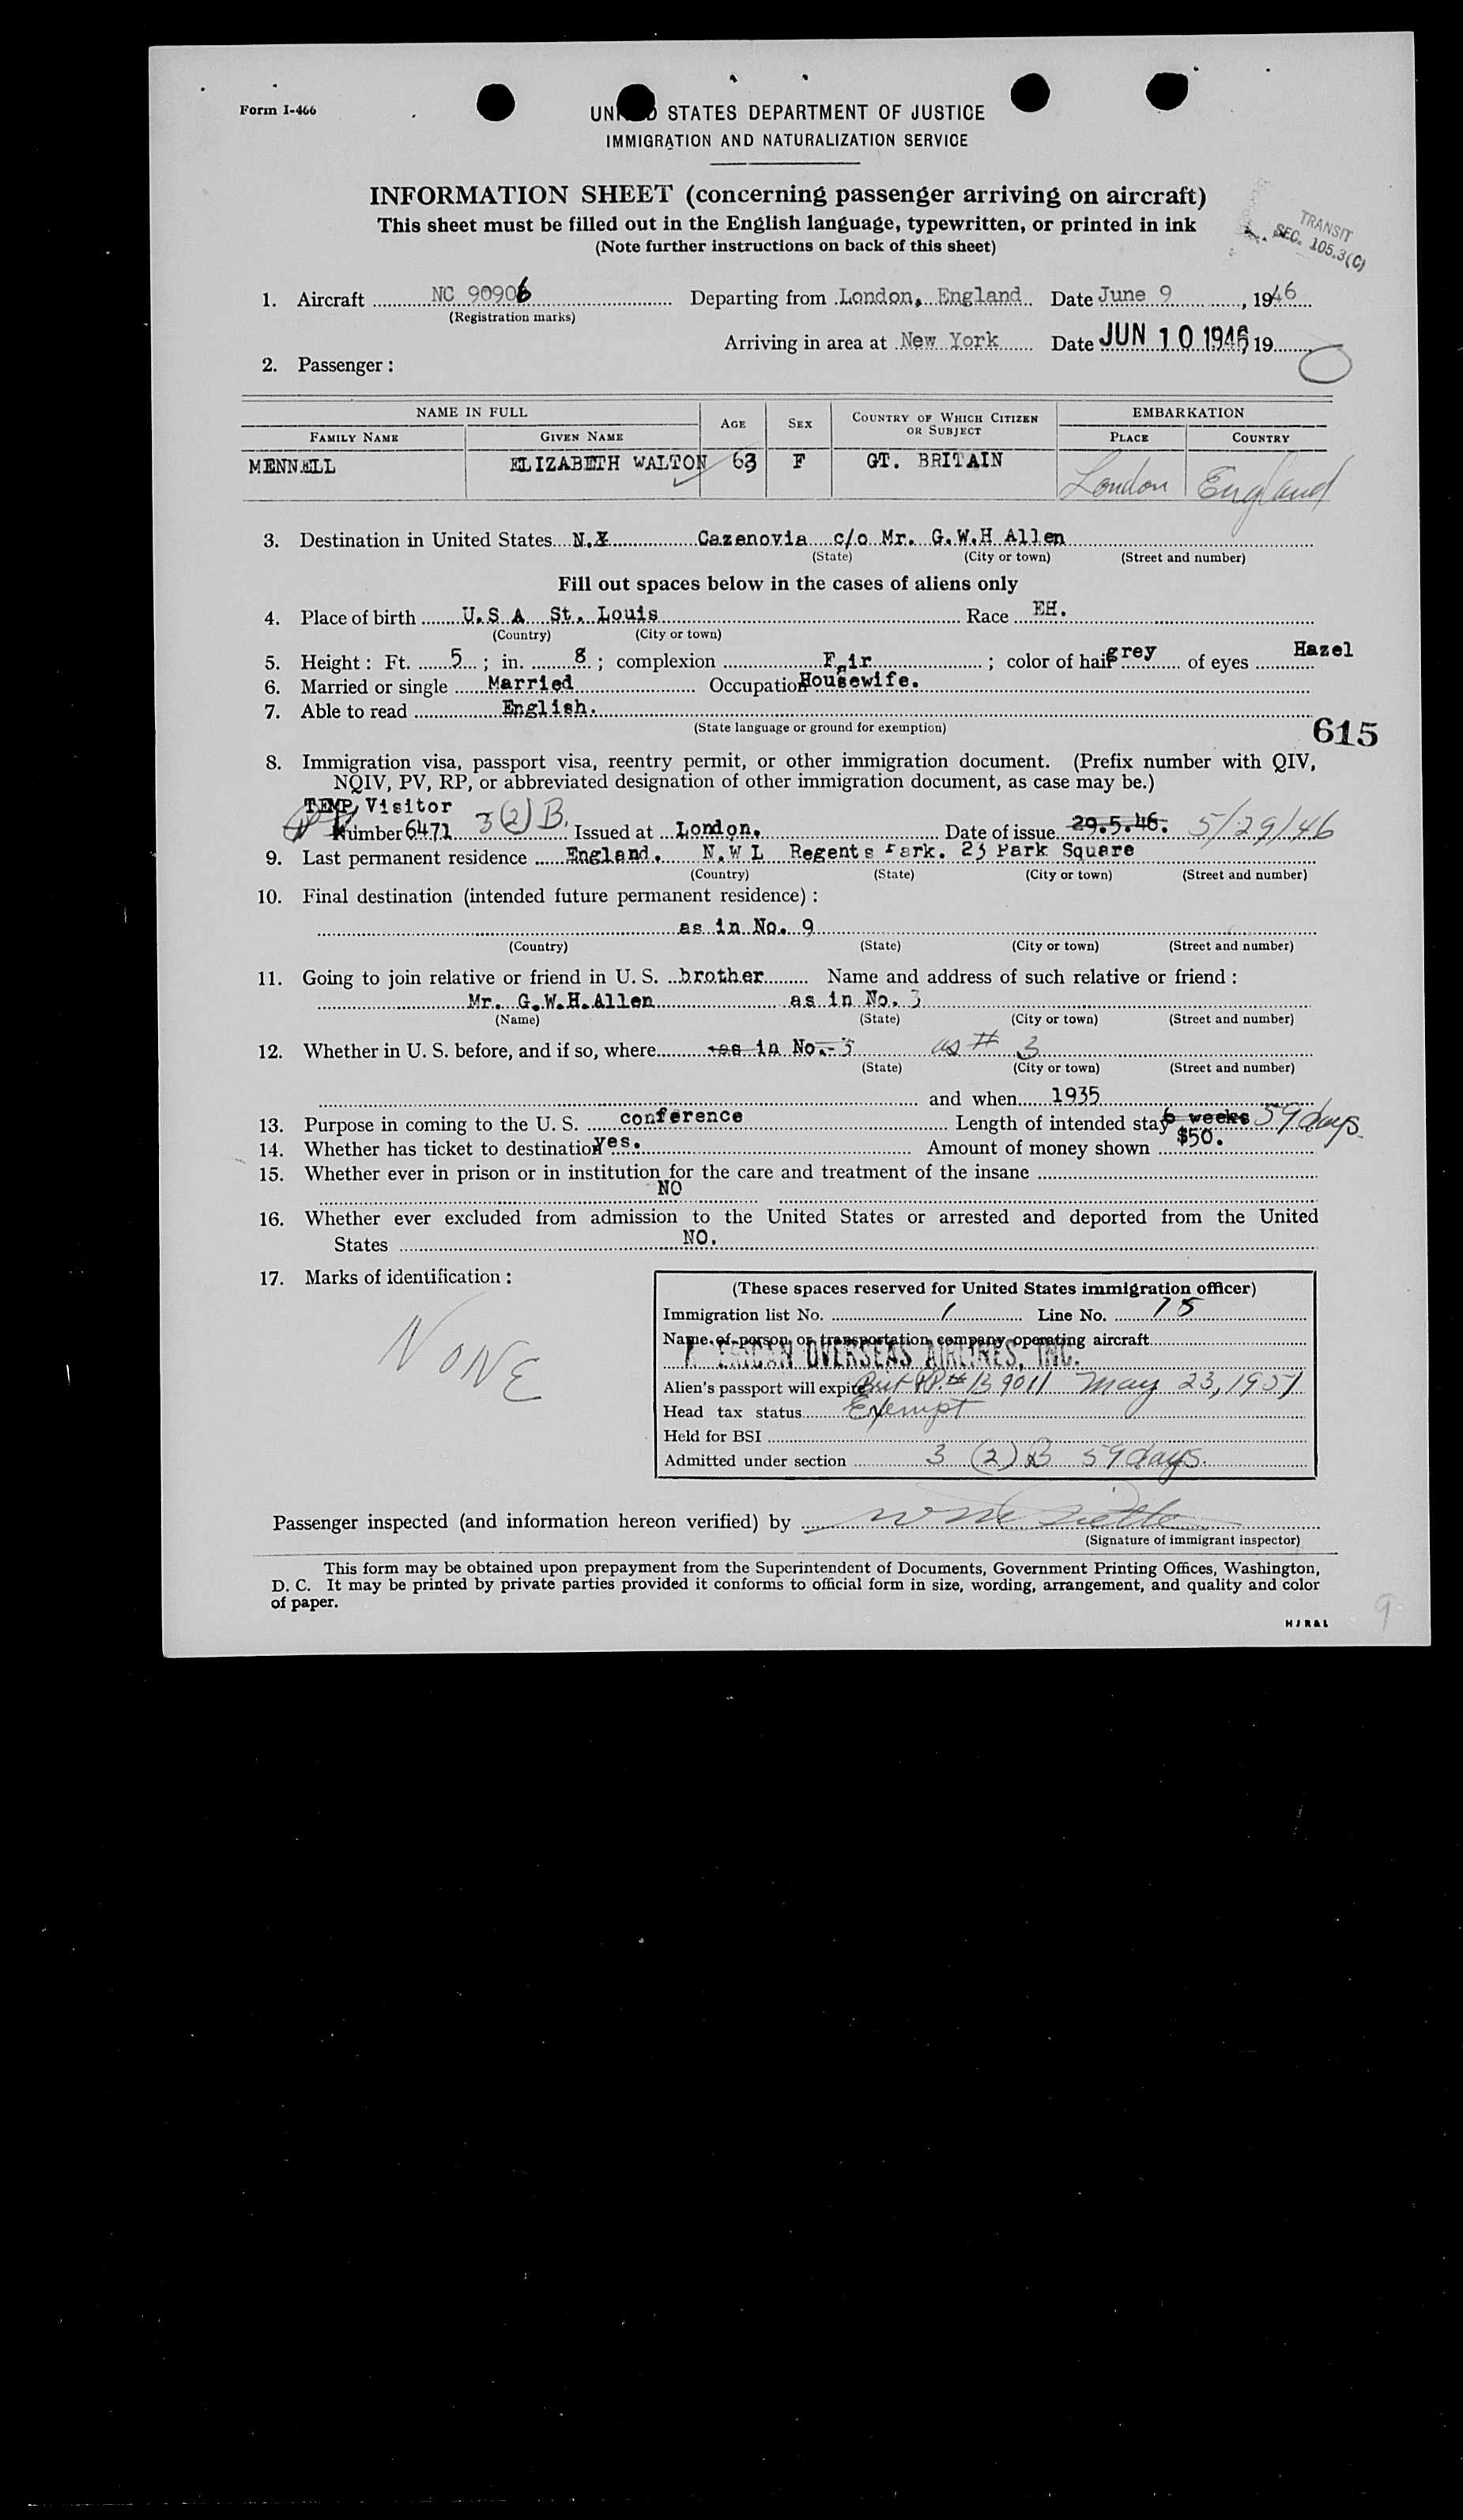 Form I-466
UNITED STATES DEPARTMENT OF JUSTICE
IMMIGRATION AND NATURALIZATION SERVICE
INFORMATION SHEET (concerning passenger arriving on aircraft)
This sheet must be filled out in the English language, typewritten, or printed in ink
(Note further instructions on back of this sheet)
TRANSIT
SEC. 105.3(C)
1. Aircraft NC 90906 Departing from London, England Date June 9, 1946
(Registration marks)
Arriving in area at New York Date JUN 10 1946 19
2. Passenger:
NAME IN FULL AGE SEX COUNTRY OF WHICH CITIZEN OR SUBJECT EMBARKATION
FAMILY NAME GIVEN NAME PLACE COUNTRY
MENNELL ELIZABETH WALTON 63 F GT. BRITAIN London England
3. Destination in United States N.Y Cazenovia c/o Mr. G.W.H Allen
(State) (City or town) (Street and number)
Fill out spaces below in the cases of aliens only
4. Place of birth U.S A St. Louis Race EH.
(Country) (City or town)
5. Height: Ft. 5; in. 8; complexion Fair; color of hair grey of eyes Hazel
6. Married or single Married Occupation Housewife.
7. Able to read English.
(State language or ground for exemption)
615
8. Immigration visa, passport visa, reentry permit, or other immigration document. (Prefix number with QIV,
NQIV, PV, RP, or abbreviated designation of other immigration document, as case may be.)
TEMP Visitor
Number 6471 3(2)B. Issued at London. Date of issue 29.5.46. 5/29/46
9. Last permanent residence England. N.W 1 Regents Park. 23 Park Square
(Country) (State) (City or town) (Street and number)
10. Final destination (intended future permanent residence):
as in No. 9
(Country) (State) (City or town) (Street and number)
11. Going to join relative or friend in U. S. brother Name and address of such relative or friend:
Mr. G.W.H.Allen as in No. 3
(Name) (State) (City or town) (Street and number)
12. Whether in U. S. before, and if so, where as in No. 3 as # 3
(State) (City or town) (Street and number)
and when 1935
13. Purpose in coming to the U. S. conference Length of intended stay 6 weeks 59 days
14. Whether has ticket to destination yes. Amount of money shown $50.
15. Whether ever in prison or in institution for the care and treatment of the insane
NO
16. Whether ever excluded from admission to the United States or arrested and deported from the United
States NO.
17. Marks of identification:
NONE
(These spaces reserved for United States immigration officer)
Immigration list No. 1 Line No. 15
Name of person or transportation company operating aircraft
AMERICAN OVERSEAS AIRLINES, INC.
Alien's passport will expire Brit PP.# B 9011 May 23, 1951
Head tax status Exempt
Held for BSI
Admitted under section 3 (2) B 59 days.
Passenger inspected (and information hereon verified) by
(Signature of immigrant inspector)
This form may be obtained upon prepayment from the Superintendent of Documents, Government Printing Offices, Washington,
D. C. It may be printed by private parties provided it conforms to official form in size, wording, arrangement, and quality and color
of paper.
H/R&L
9